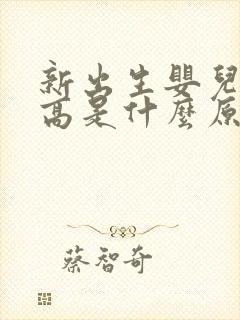 新出生嬰兒
高是什麼原
蔡智奇